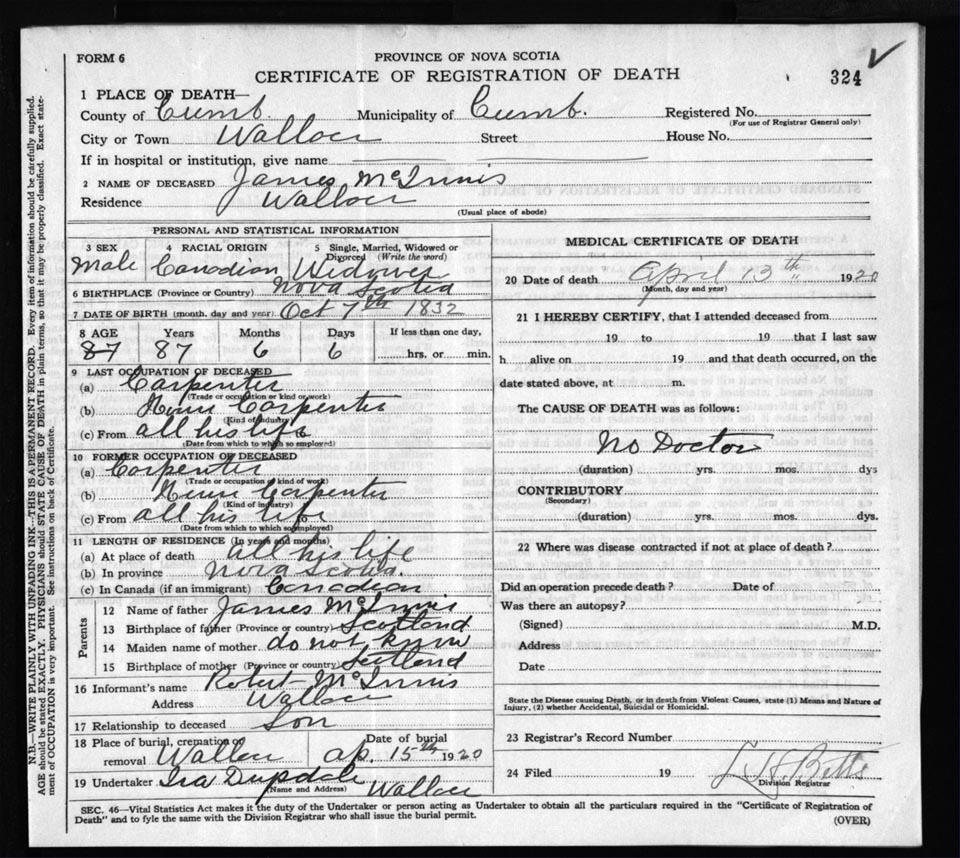 FORM 6
PROVINCE OF NOVA SCOTIA
CERTIFICATE OF REGISTRATION OF DEATH
324
1 PLACE OF DEATH—
County of Cumb. Municipality of Cumb. Registered No.
(For use of Registrar General only)
City or Town Wallace Street House No.
If in hospital or institution, give name
2 NAME OF DECEASED James McInnis
Residence Wallace
(Usual place of abode)
PERSONAL AND STATISTICAL INFORMATION
3 SEX 4 RACIAL ORIGIN 5 Single, Married, Widowed or Divorced (Write the word)
Male Canadian Widower
6 BIRTHPLACE (Province or Country) Nova Scotia
7 DATE OF BIRTH (month, day and year) Oct 7th 1832
8 AGE Years Months Days If less than one day,
87 87 6 6 hrs. or min.
9 LAST OCCUPATION OF DECEASED
(a) Carpenter
(Trade or occupation or kind of work)
(b) House Carpenter
(Kind of industry)
(c) From all his life
(Date from which to which so employed)
10 FORMER OCCUPATION OF DECEASED
(a) Carpenter
(Trade or occupation or kind of work)
(b) House Carpenter
(Kind of industry)
(c) From all his life
(Date from which to which so employed)
11 LENGTH OF RESIDENCE (In years and months)
(a) At place of death all his life
(b) In province Nova Scotia.
(c) In Canada (if an immigrant) Canadian
Parents
12 Name of father James McInnis
13 Birthplace of father (Province or country) Scotland
14 Maiden name of mother do not know
15 Birthplace of mother (Province or country) Scotland
16 Informant's name Robert McInnis
Address Wallace
17 Relationship to deceased Son
18 Place of burial, cremation or removal Wallace Date of burial ap. 15th 1920
19 Undertaker Ira Wallace
(Name and Address)
MEDICAL CERTIFICATE OF DEATH
20 Date of death April 13th 1920
(Month, day and year)
21 I HEREBY CERTIFY, that I attended deceased from
19 to 19 that I last saw
h alive on 19 and that death occurred, on the
date stated above, at m.
The CAUSE OF DEATH was as follows:
No Doctor
(duration) yrs. mos. dys
CONTRIBUTORY
(Secondary)
(duration) yrs. mos. dys.
22 Where was disease contracted if not at place of death?
Did an operation precede death? Date of
Was there an autopsy?
(Signed) M.D.
Address
Date
State the Disease causing Death, or in death from Violent Causes, state (1) Means and Nature of
Injury, (2) whether Accidental, Suicidal or Homicidal.
23 Registrar's Record Number
24 Filed 19 Betts
Division Registrar
SEC. 46—Vital Statistics Act makes it the duty of the Undertaker or person acting as Undertaker to obtain all the particulars required in the "Certificate of Registration of
Death" and to fyle the same with the Division Registrar who shall issue the burial permit.
(OVER)
N.B.—WRITE PLAINLY WITH UNFADING INK—THIS IS A PERMANENT RECORD. Every item of information should be carefully supplied.
AGE should be stated EXACTLY. PHYSICIANS should STATE CAUSE OF DEATH in plain terms, so that it may be properly classified. Exact state-
ment of OCCUPATION is very important. See instructions on back of Certificate.